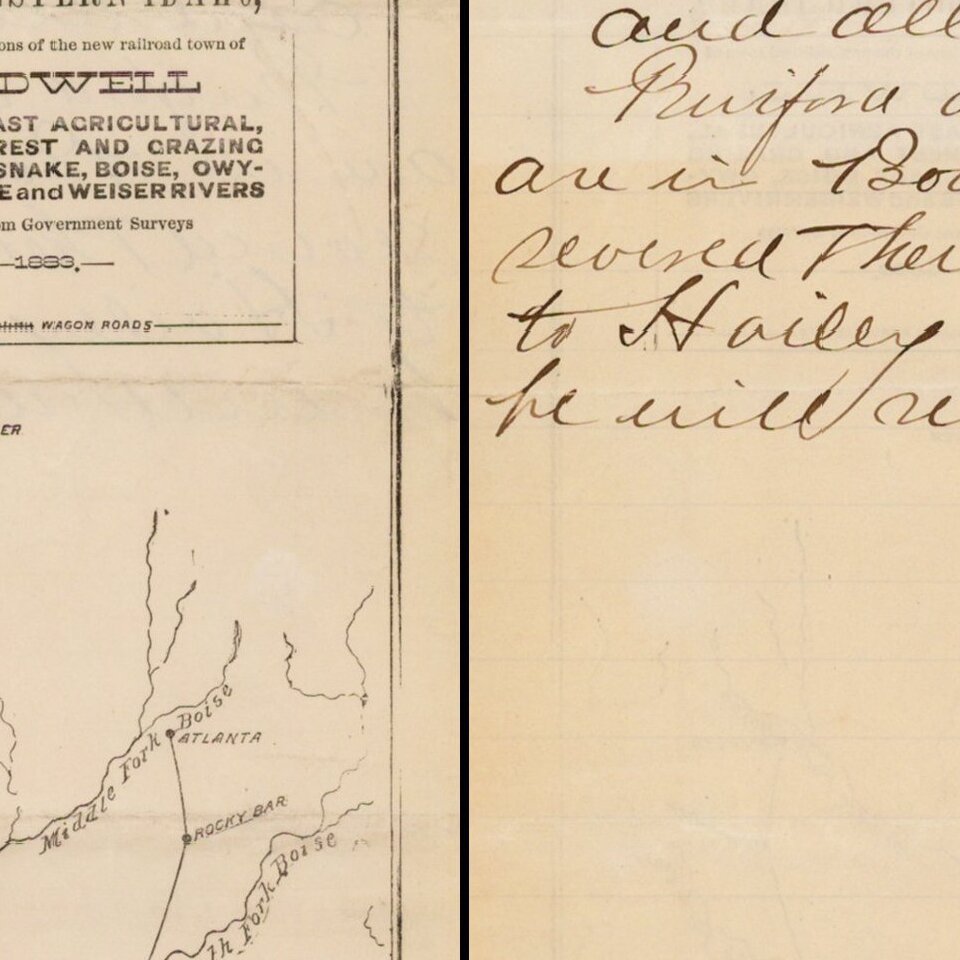 STERN IDAHO,
ons of the new railroad town of
DWELL
AST AGRICULTURAL,
REST AND GRAZING
SNAKE, BOISE, OWY-
E and WEISER RIVERS
om Government Surveys
—1883.—
WAGON ROADS
ER
Middle Fork Boise
ATLANTA
ROCKY BAR
th Fork Boise
and all
are in Boi
Ther
to Hailey
he will re